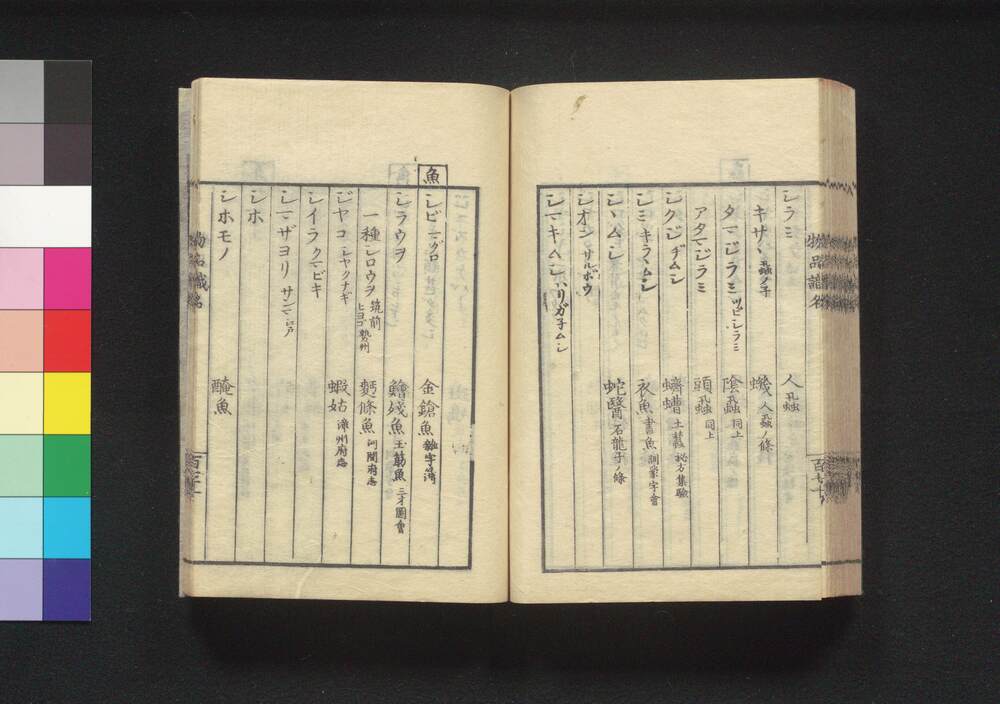 シラミ 人虱
キサヽ 虱ノ子 蟣 人虱ノ條
タマジラミ ツビシラミ 陰虱 同上
アタマジラミ 頭虱 同上
シクジヂムシ 蠐螬 土蠶 秘方集驗
シミ キラヽムシ 衣魚 書魚 訓蒙字會
シヽムシ 蛇醫 石龍子ノ條
シオシ サルボウ
シマキムシ ハリガ子ムシ
物品識名
魚
シビ マグロ 金鎗魚
シラウヲ 鱠殘魚 王筋魚 三才圖會
一種シロウヲ 筑前 ヒヨゴ 勢州 麪條魚 河間府志
ジヤコ シヤクナギ 蝦姑 漳州府志
シイラ クマビキ
シマザヨリ サンマ 江戸
シホ
シホモノ 醃魚
物品識名